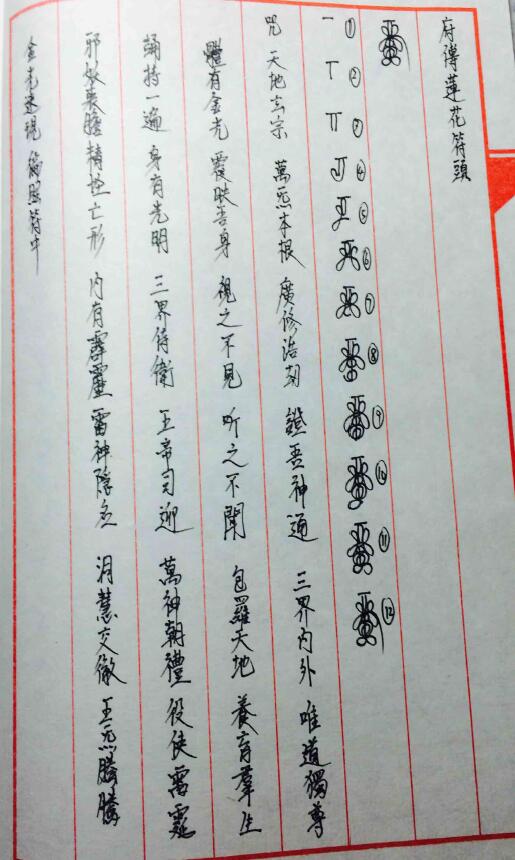 府傳蓮花符頭
① ② ③ ④ ⑤ ⑥ ⑦ ⑧ ⑨ ⑩ ⑪ ⑫
咒 天地玄宗 萬炁本根 廣修浩劫 證吾神通 三界內外 唯道獨尊
體有金光 覆映吾身 視之不見 听之不聞 包羅天地 養育羣生
誦持一遍 身有光明 三界侍衛 五帝司迎 萬神朝禮 役使雷霆
邪妖喪膽 精怪亡形 內有霹靂 雷神隱名 洞慧交徹 五炁騰騰
金光速現 俯照符中